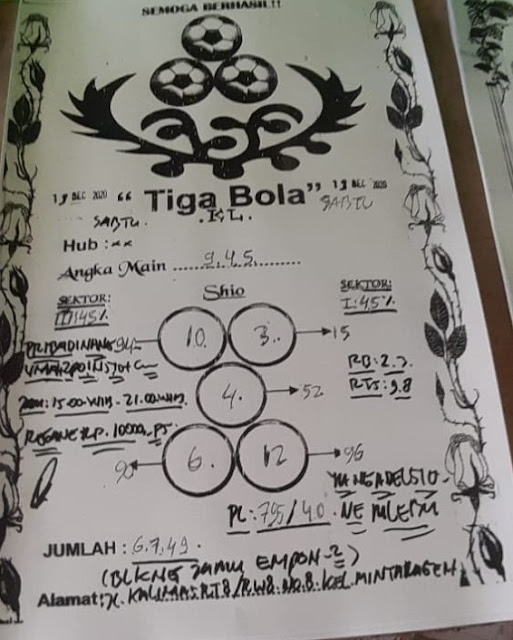 SEMOGA BERHASIL!!
19 DEC 2020 “ Tiga Bola” 19 DEC 2020
SABTU . KL. SABTU
Hub : xx
Angka Main ......9.4.5..........
SEKTOR: Shio SEKTOR:
II:45% I:45%
PRIBADINANG 94 10. 3.. 15
RB: 2.7
4. 52 RTS: 9.8
JAM: 15.00 WIB - 21.00 WIB.
RP. 10000,-
90 6. 12 96
PL: 795/40.
JUMLAH : 6.7.49.
(BLKNG JAMU EMPON-2)
Alamat: JL. KALIMAS RT8/RW8 NO.8 KEL MINTARAGEN